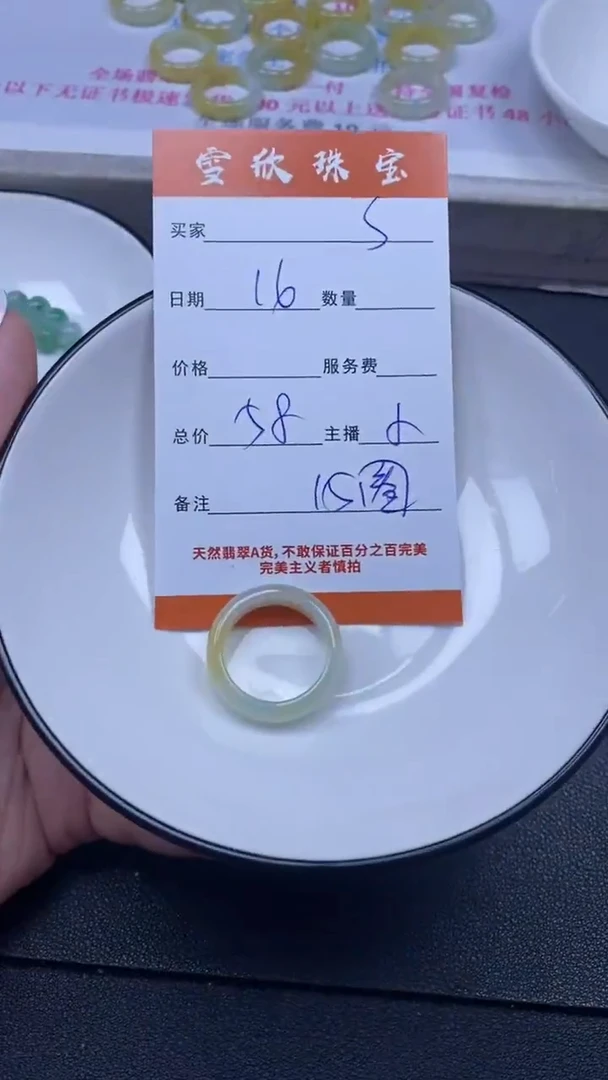 全场翡
以下无证书极速
00元以上送
证书48小
复检
雪欣珠宝
买家 5
日期 16 数量
价格 服务费
总价 58 主播
备注 15圈
天然翡翠A货,不敢保证百分之百完美
完美主义者慎拍